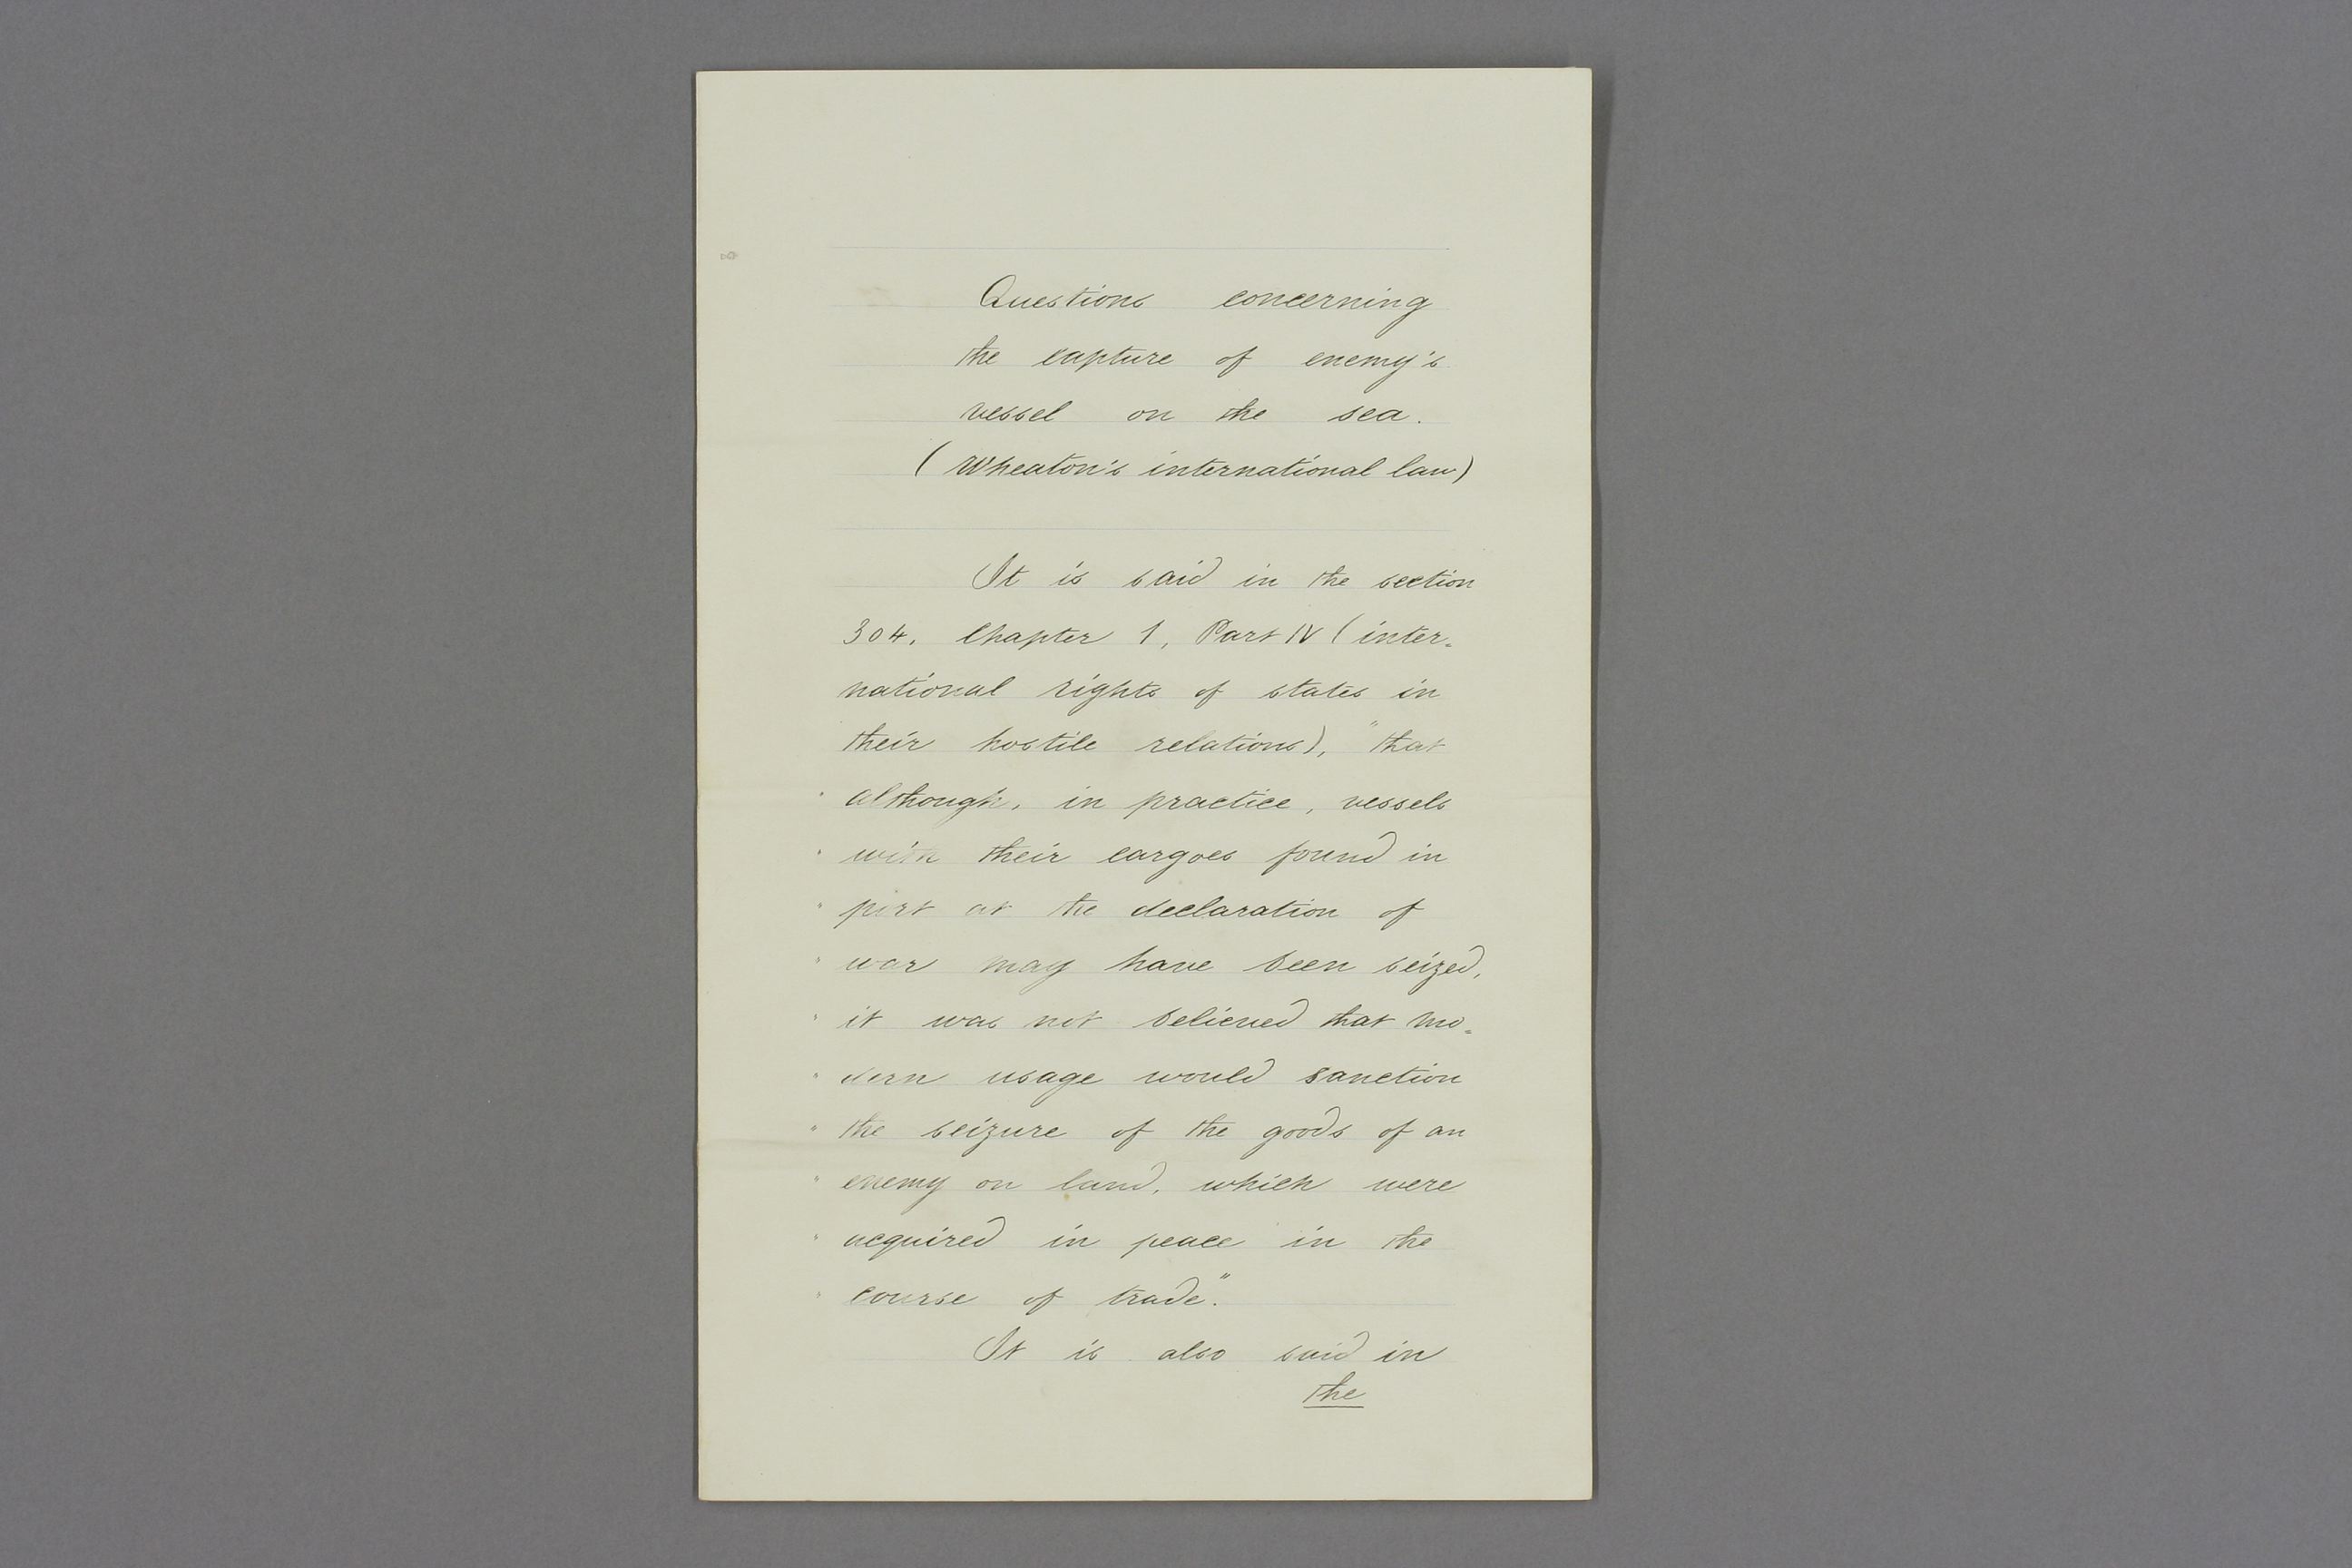 Questions concerning
the capture of enemy's
vessel on the sea.
(Wheaton's international law)
It is said in the section
304, Chapter 1, Part IV (inter-
national rights of states in
their hostile relations), "that
" although, in practice, vessels
" with their cargoes found in
" port at the declaration of
" war may have been seized,
" it was not believed that mo-
" dern usage would sanction
" the seizure of the goods of an
" enemy on land, which were
" acquired in peace in the
" course of trade."
It is also said in
the